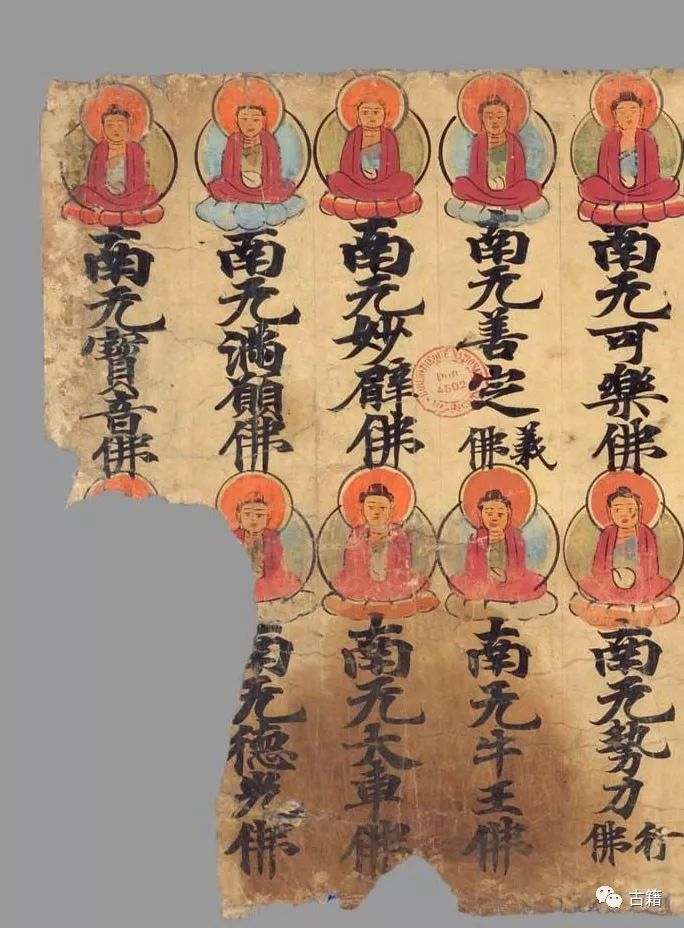 南无可樂佛
南无善定義佛
南无妙臂佛
南无滿願佛
南无寶音佛
南无勢力行佛
南无牛王佛
南无大車佛
南无德光佛
Don
4502
古籍